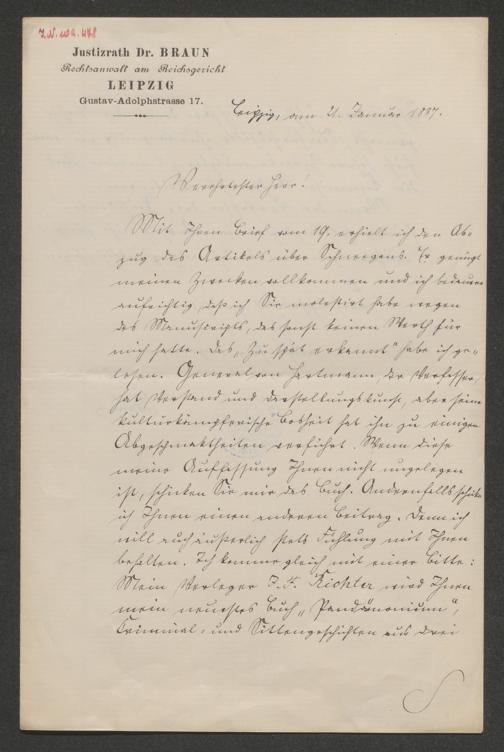 J.N. 109.478
Justizrath Dr. BRAUN
Rechtsanwalt am Reichsgericht
LEIPZIG
Gustav-Adolphstrasse 17.
Leipzig, am 21. Januar 1887.
Verehrtester Herr!
Mit Ihrem Brief vom 19. erhielt ich den Ab-
zug des Artikels über Schneegans. Er genügt
meinen Zwecken vollkommen und ich bedauere
aufrichtig, daß ich Sie molestirt habe wegen
des Manuscripts, das sonst keinen Werth für
mich hatte. Das „Zu spät erkannt" habe ich ge-
lesen. General von Hartmann der Verfasser,
hat Verstand und Darstellungskunst, aber seine
kulturkämpferische Bosheit hat ihn zu einigen
Abgeschmaktheiten verführt. Wenn diese
meine Auffassung Ihnen nicht ungelegen
ist, schicken Sie mir das Buch. Andernfalls schicke
ich Ihnen einen anderen Beitrag. Denn ich
will auch äußerlich stets Fühlung mit Ihnen
behalten. Ich komme gleich mit einer Bitte:
Mein Verleger J. F. Richter wird Ihnen
mein neuestes Buch „Pandämonium",
Criminal- und Sittengeschichten aus drei